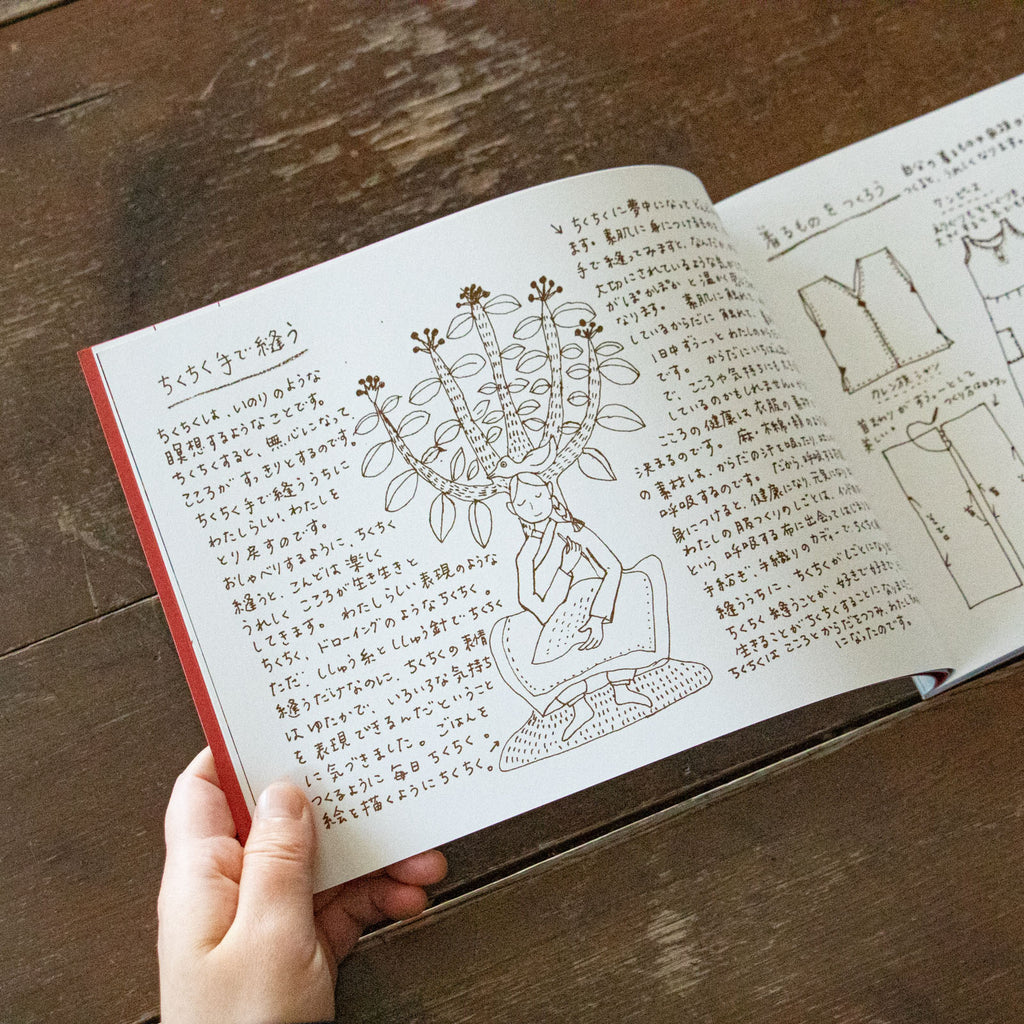 ちくちく手で縫う
ちくちくは、いのりのような
瞑想するようなことです。
ちくちくすると、無心になって
こころが すっきりとするのです。
ちくちく手で縫ううちに
わたしらしい、わたしを
とり戻すのです。
おしゃべりするように、ちくちく
縫うと、こんどは 楽しく
うれしく こころが生き生きと
してきます。 わたしらしい 表現のような
ちくちく、ドローイングのような ちくちく。
ただ、ししゅう糸と ししゅう針で ちくちく
縫うだけなのに、ちくちくの表情
は ゆたかで、いろいろな気持ち
を 表現できるんだ ということ
に 気づきました。 ごはんを
つくるように 毎日 ちくちく。
絵を描くように ちくちく。
ちくちくに夢中になって
ます。 素肌に 身につけるもの
手で 縫ってみますと、なんだか
大切にされているような
がぽかぽか と 温かく
なります。 素肌に 触れて
しているからだに 触れて、
1日中 ずうーっと わたしのからだ
です。 からだにいちばん
で、こころや気持ちにも
しているのかもしれません。
こころの 健康は 衣服の 素材
決まるのです。 麻、木綿・絹
の 素材は、からだの汗を 吸ったり
呼吸するのです。 だから、呼吸する
身につけると、健康になり、元気になり
わたしの 服つくりの しごとは、
という 呼吸する 布に 出会ってはじ
手紡ぎ・手織りの カディーで ちくちく
縫ううちに、ちくちくがしごとになり
ちくちく 縫うことが、好きで 好きで
生きることが ちくちくすることになり
ちくちくは こころと からだをつつみ、わたし
になったのです。
着るものを つくろう
自分の 着るものを 自分で
つくると、うれしくなります。
ワンピース